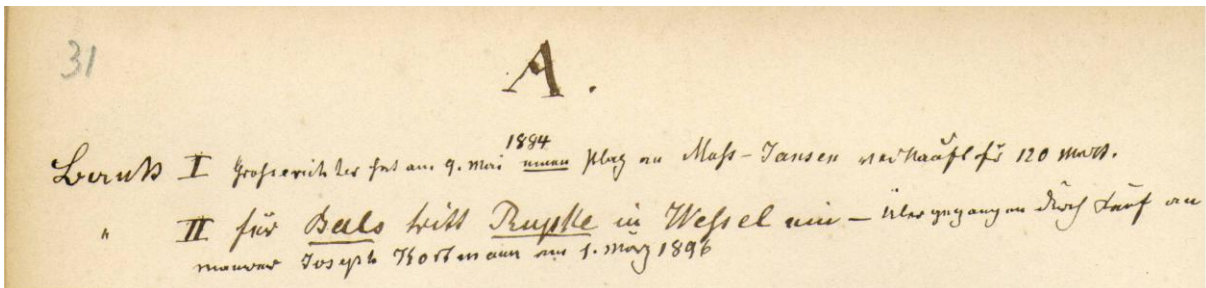 31
A.
1894
Bank I Grosserichter hat am 9. Mai einen Platz an Maß-Jansen verkauft für 120 Mark.
" II für Bals tritt Rupke in Wessel ein – übergegangen durch Kauf an
Maurer Joseph Kortmann am 1. März 1896